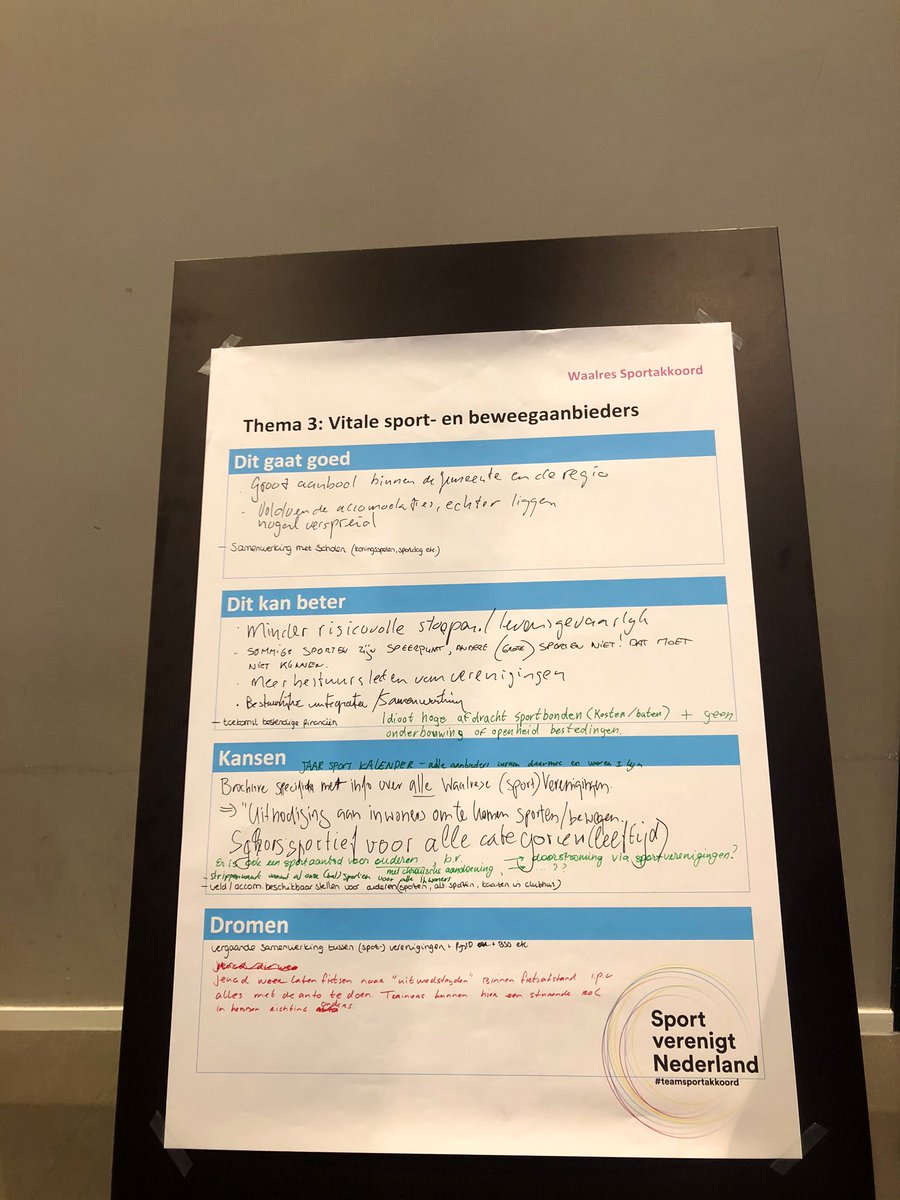 Waalres Sportakkoord
Thema 3: Vitale sport- en beweegaanbieders
Dit gaat goed
· Groot aanbod binnen de gemeente en de regio
· Voldoende accomodaties, echter liggen
nogal verspreid
- Samenwerking met scholen (koningsspelen, sportdag etc)
Dit kan beter
· Minder risicovolle / levensgevaarlijk
· SOMMIGE SPORTEN ZIJN SPEERPUNT, ANDERE (GROTE) SPORTEN NIET! DAT MOET
NIET KUNNEN.
· Meer bestuursleden van verenigingen
· Bestuurlijke integratie / Samenwerking
- toekomst bestendige financiën
Idioot hoge afdracht sportbonden (Kosten/baten) + geen
onderbouwing of openheid bestedingen.
Kansen
JAAR SPORT KALENDER - alle aanbieders werken daarmee en
Brochure met info over alle Waalrese (sport) Verenigingen.
=> "Uitnodiging aan inwoners om te komen sporten/bewegen.
sportief voor alle categoriën (leeftijd)
Er is ook een sportaanbod voor ouderen, b.v. doorstroming via sportverenigingen?
met chronische aandoening, ...??
- strippenkaart waarmee al onze sporten voor alle inwoners
- veld/accom. beschikbaar stellen voor anderen (sporten, alt. sporten, kaarten in clubhuis)
Dromen
vergaande samenwerking tussen (sport-) verenigingen + + BSO etc
jeugd weer laten fietsen naar "uitwedstrijden" Binnen fietsafstand i.p.v
alles met de auto te doen. Trainers kunnen hier een sturende rol
in hebben richting ouders.
Sport
verenigt
Nederland
#teamsportakkoord